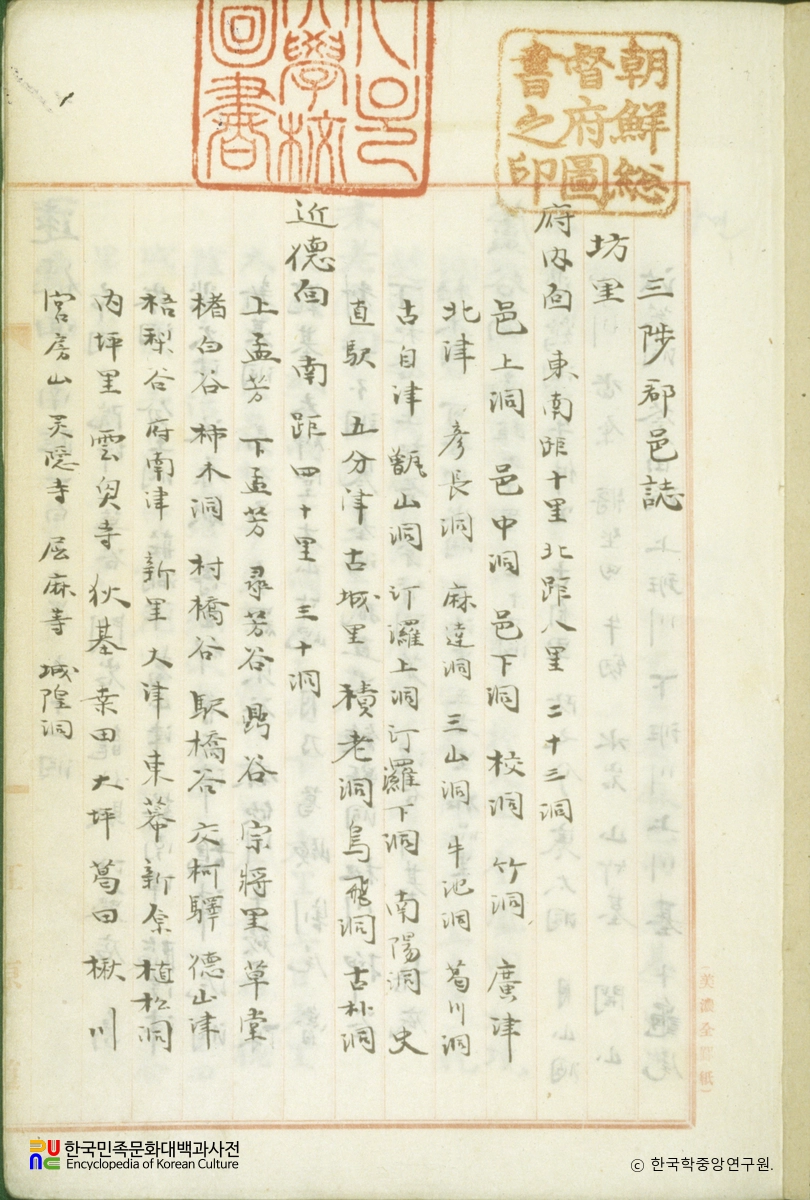 朝鮮総
督府圖
書之印
學校
圖書
三陟郡邑誌
坊里
府內面 東南距十里北距八里 二十三洞
邑上洞 邑中洞 邑下洞 校洞 竹洞 廣津
北津 彦長洞 麻達洞 三山洞 牛池洞 葛川洞
古自津 甑山洞 汀羅上洞 汀羅下洞 南陽洞 史
直馱 五分津 古城里 積老洞 烏飛洞 古朴洞
近德面 南距四十里 三十洞
上孟芳 下孟芳 芳谷 鼎谷 宗將里 草堂
楮白谷 柿木洞 村橋谷 馱橋谷 交柯驛 德山津
梧梨谷 府南津 新里 大津 東幕 新原 植松洞
內坪里 雲臾寺 狄基 桒田 大坪 葛田 楸川
宮房山 灵隠寺 屈麻寺 城隍洞
(美濃全罫紙)
한국민족문화대백과사전
Encyclopedia of Korean Culture
© 한국학중앙연구원.